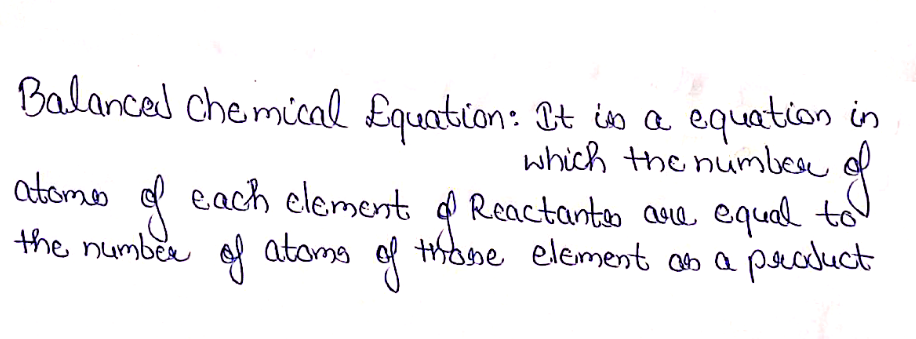 Balanced Chemical Equation: It is a equation in
which the number of
atoms of each element of Reactants are equal to
the number of atoms of those element as a product